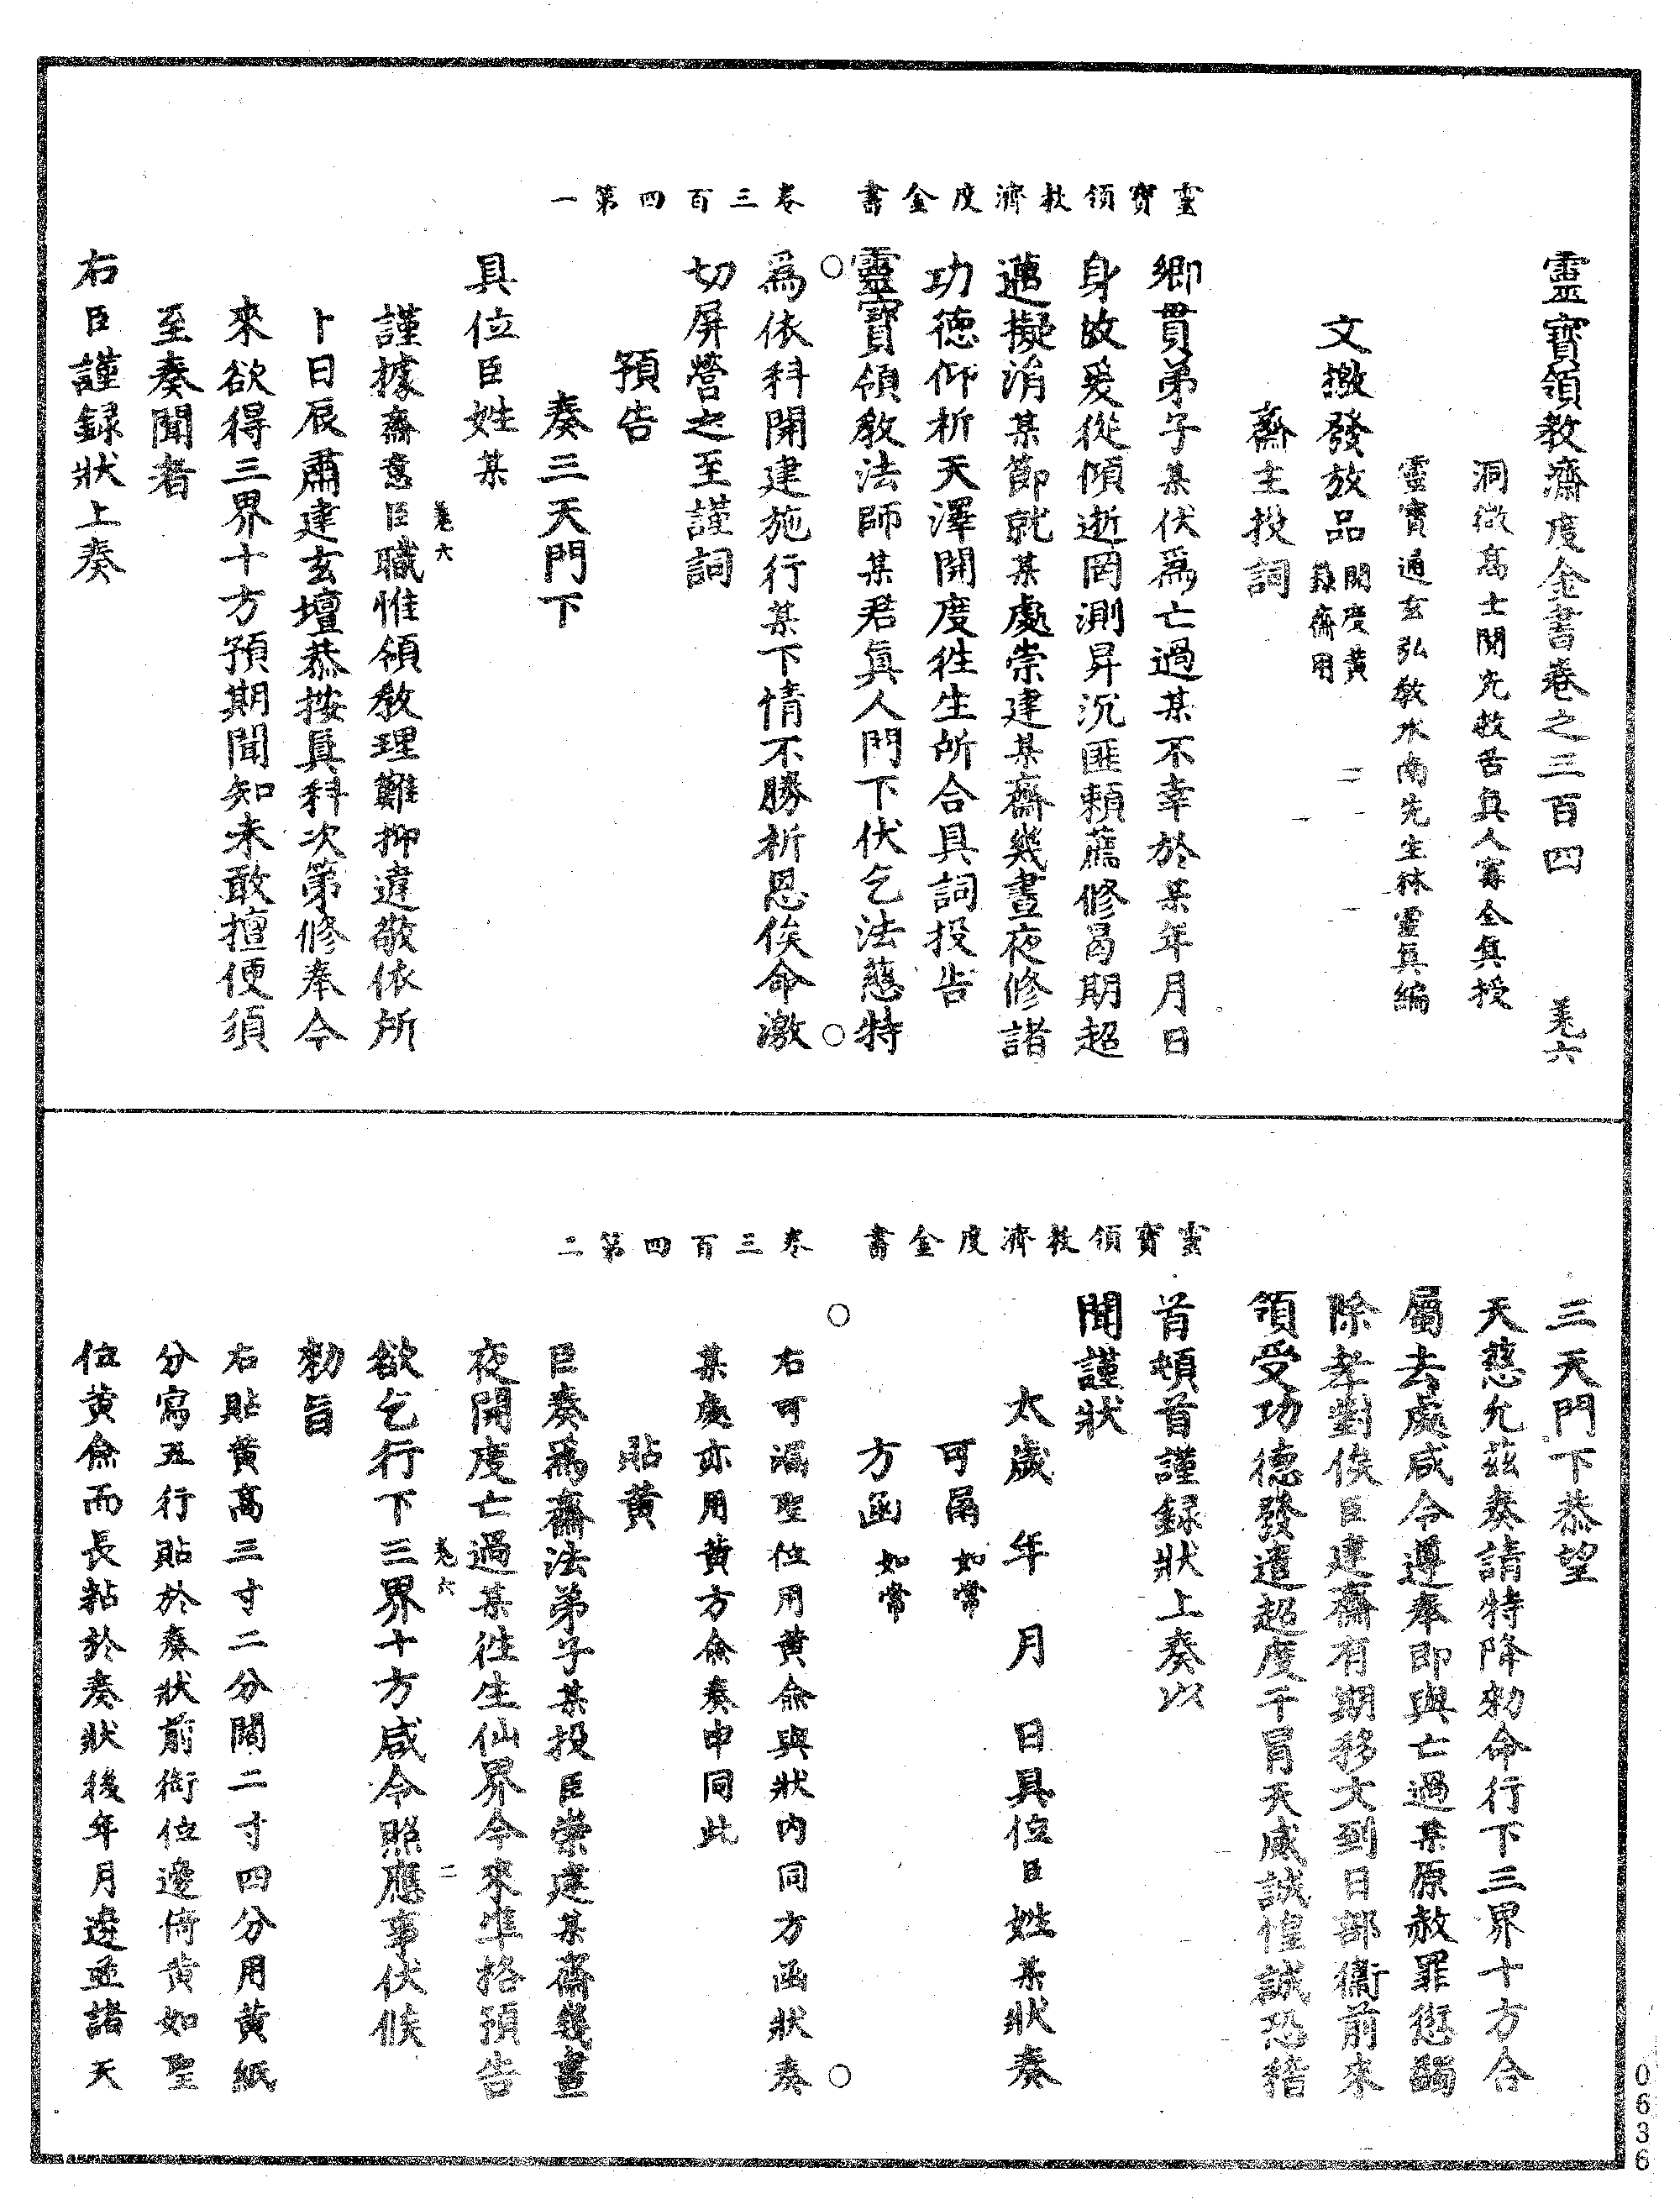 靈寶領教濟度金書卷之三百四　羌六
洞微高士開光救苦真人寗全真授
靈寶通玄弘教水南先生林靈真編
文檄發放品開度黃籙齋用
齋主投詞
鄉貫弟子某伏爲亡過某不幸於某年月日
身故爰從傾逝罔測昇沉匪賴薦修曷期超
邁擬涓某節就某處崇建某齋幾晝夜修諸
功德仰祈天澤開度往生所合具詞投告
靈寶領教法師某君真人門下伏乞法慈特
靈寶領教濟度金書　卷三百四第一
爲依科開建施行某下情不勝祈恩俟命激
切屏營之至謹詞
預告
奏三天門下
具位臣姓某
羌六
謹據齋意臣職惟領教理難抑違敬依所
卜日辰肅建玄壇恭按真科次第修奉今
來欲得三界十方預期聞知未敢擅便須
至奏聞者
右臣謹錄狀上奏
三天門下恭望
天慈允茲奏請特降勑命行下三界十方合
屬去處咸令遵奉即與亡過某原赦罪愆蠲
除考對俟臣建齋有期移文到日部衞前來
領受功德發遣超度干冒天威誠惶誠恐稽
首頓首謹錄狀上奏以
聞謹狀
太歲　年　月　日具位臣姓某狀奏
可漏如常
方函如常
靈寶領教濟度金書　卷三百四第二
右可漏聖位用黃僉與狀內同方函狀奏
某處亦用黃方僉奏申同此
貼黃
臣奏爲齋法弟子某投臣崇建某齋幾晝
夜開度亡過某往生仙界今來準格預告
羌六　二
欲乞行下三界十方咸令照應事伏候
勑旨
右貼黃高三寸二分闊二寸四分用黃紙
分寫五行貼於奏狀前銜位邊倚黃如聖
位黃僉而長粘於奏狀後年月邊並諸天
0636